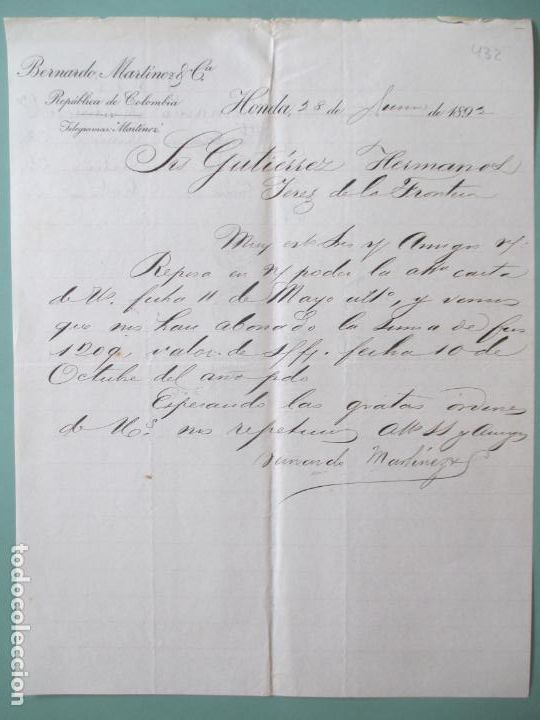 432
Bernardo Martínez & Cía
República de Colombia
Telegramas "Martínez"
Honda, 28 de Junio de 1892
Srs Gutiérrez Hermanos
Jerez de la Frontera
Muy est Srs y Amigos
Reposa en poder la atta carta
de Us. fecha 11 de Mayo ulto, y vemos
que nos han abonado la suma de
1209, valor de fecha 10 de
Octubre del año pdo
Esperando las gratas ordenes
de Us. nos repetimos Atto SS y Amigos
Bernardo Martínez &
todocoleccion